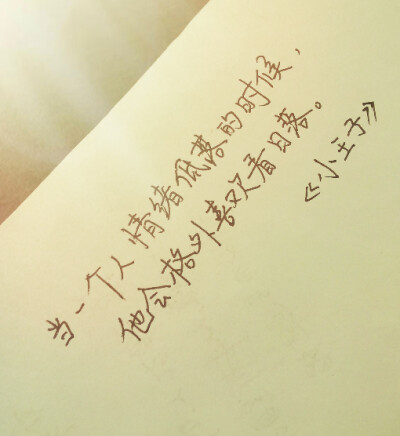 当一个人情绪低落的时候，
他会格外喜欢看日落。
《小王子》